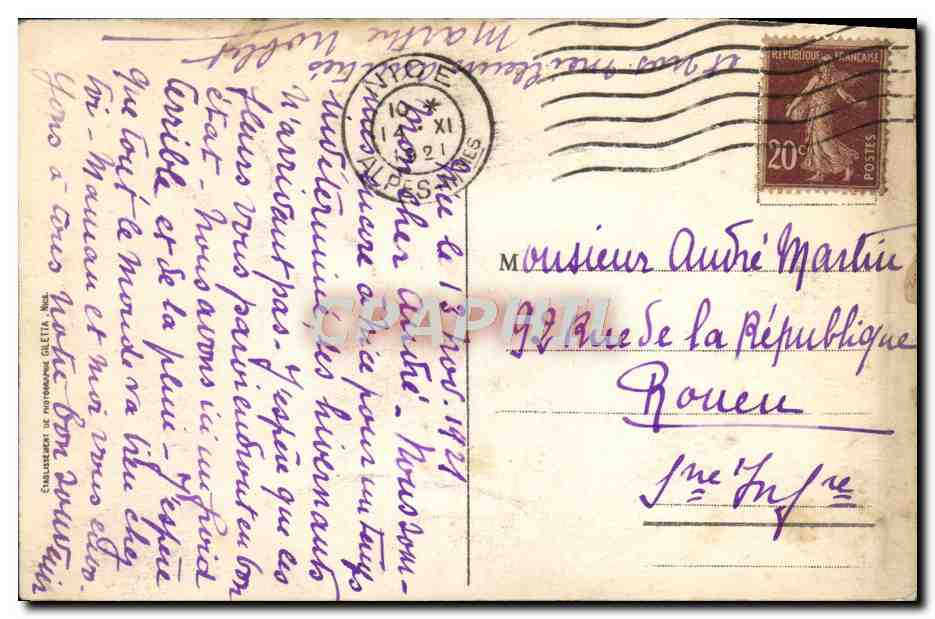 Nice le 13 Nov. 1921
Mon cher André - Nous som-
mes encore à Nice pour un temps
indéterminé, les hivernants
n'arrivent pas - J'espère que les
fleurs vous parviendront en bon
état - Nous avons ici un froid
terrible et de la pluie - J'espère
que tout le monde va bien chez
toi - Maman et moi vous envo-
yons à tous notre bon souvenir
et nos meilleures amitiés
Marthe
NICE
10 *
14 XI
1921
ALPES-MMES
RÉPUBLIQUE FRANÇAISE
20c
POSTES
Monsieur André Martin
92 Rue de la République
Rouen
Sne Infre
ETABLISSEMENT DE PHOTOGRAPHIE GILETTA, NICE
CPAPHIL